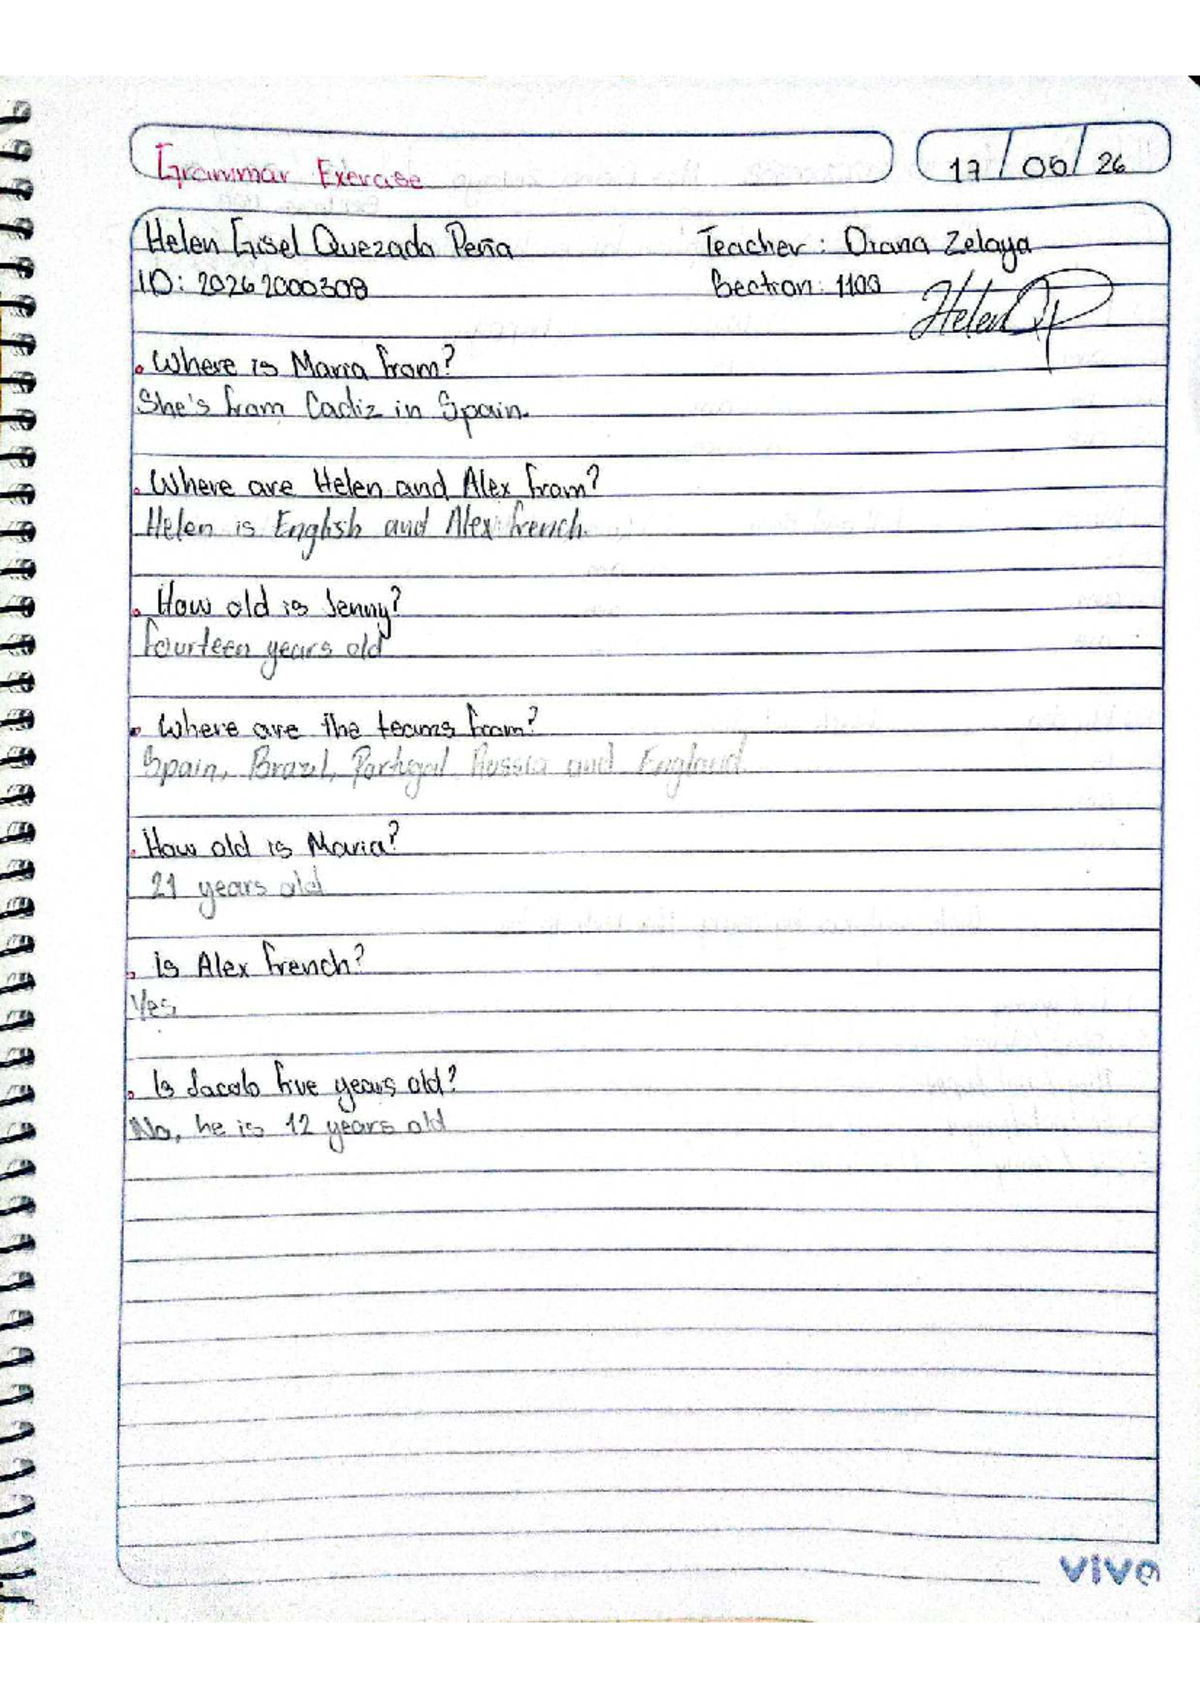 Grammar Exercise
17/06/26
Helen Gisel Quezada Peña
Teacher: Diana Zelaya
ID: 20262000308
Section: 1100
Helen QP
. Where is Maria from?
She's from Cadiz in Spain.
. Where are Helen and Alex from?
Helen is English and Alex french.
. How old is Jenny?
fourteen years old
. Where are the teams from?
Spain, Brazil, Portugal, Russia and England.
. How old is Maria?
21 years old
. is Alex french?
Yes
. Is Jacob five years old?
No, he is 12 years old
vivo